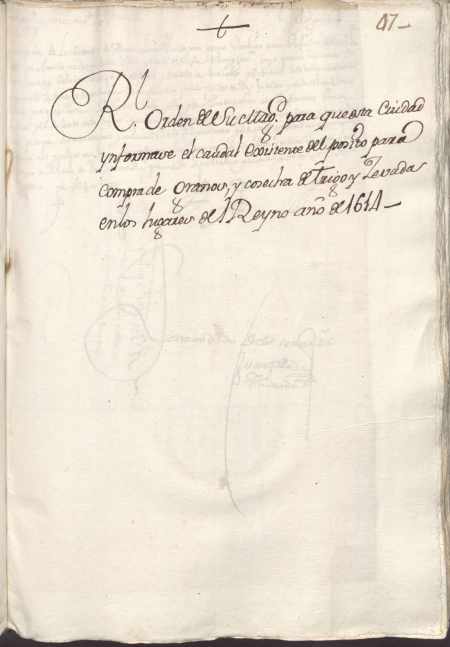 47
Rl. Orden de Su Magd. para que esta Ciudad
ynformase el caudal existente del posito para
compra de Granos, y cosecha de trigo y Zevada
en los lugares del Reyno año de 1614